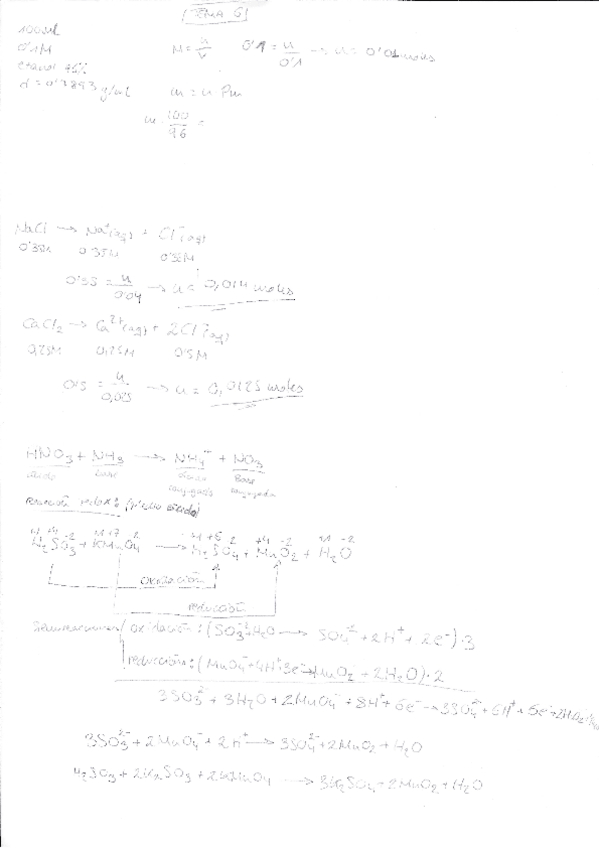 TEMA 6
100 ml
0'1M M = n/V 0'1 = n/0'1 → n = 0'01 moles
etanol 96%
d = 0'7893 g/ml m = n Pm
m · 100/96 =
NaCl → Na⁺(aq) + Cl⁻(aq)
0'35M 0'35M 0'35M
0'35 = n/0'04 → n = 0,014 moles
CaCl₂ → Ca²⁺(aq) + 2Cl⁻(aq)
0,25M 0,25M 0'5M
0'5 = n/0,025 → n = 0,0125 moles
HNO₃ + NH₃ → NH₄⁻ + NO₃
ácido base ácido conjugado base conjugada
Reacción redox: (medio ácido)
H₂SO₃ + KMnO₄ → H₂SO₄ + MnO₂ + H₂O
oxidación
reducción
Semirreacciones/ oxidación: (SO₃²⁻ + H₂O → SO₄²⁻ + 2H⁺ + 2e⁻)·3
reducción: (MnO₄⁻ + 4H⁺ + 3e⁻ → MnO₂ + 2H₂O)·2
3SO₃²⁻ + 3H₂O + 2MnO₄⁻ + 8H⁺ + 6e⁻ → 3SO₄²⁻ + 6H⁺ + 6e⁻ + 2MnO₂
3SO₃²⁻ + 2MnO₄⁻ + 2H⁺ → 3SO₄²⁻ + 2MnO₂ + H₂O
H₂SO₃ + 2K₂SO₃ + 2KMnO₄ → 3K₂SO₄ + 2MnO₂ + H₂O